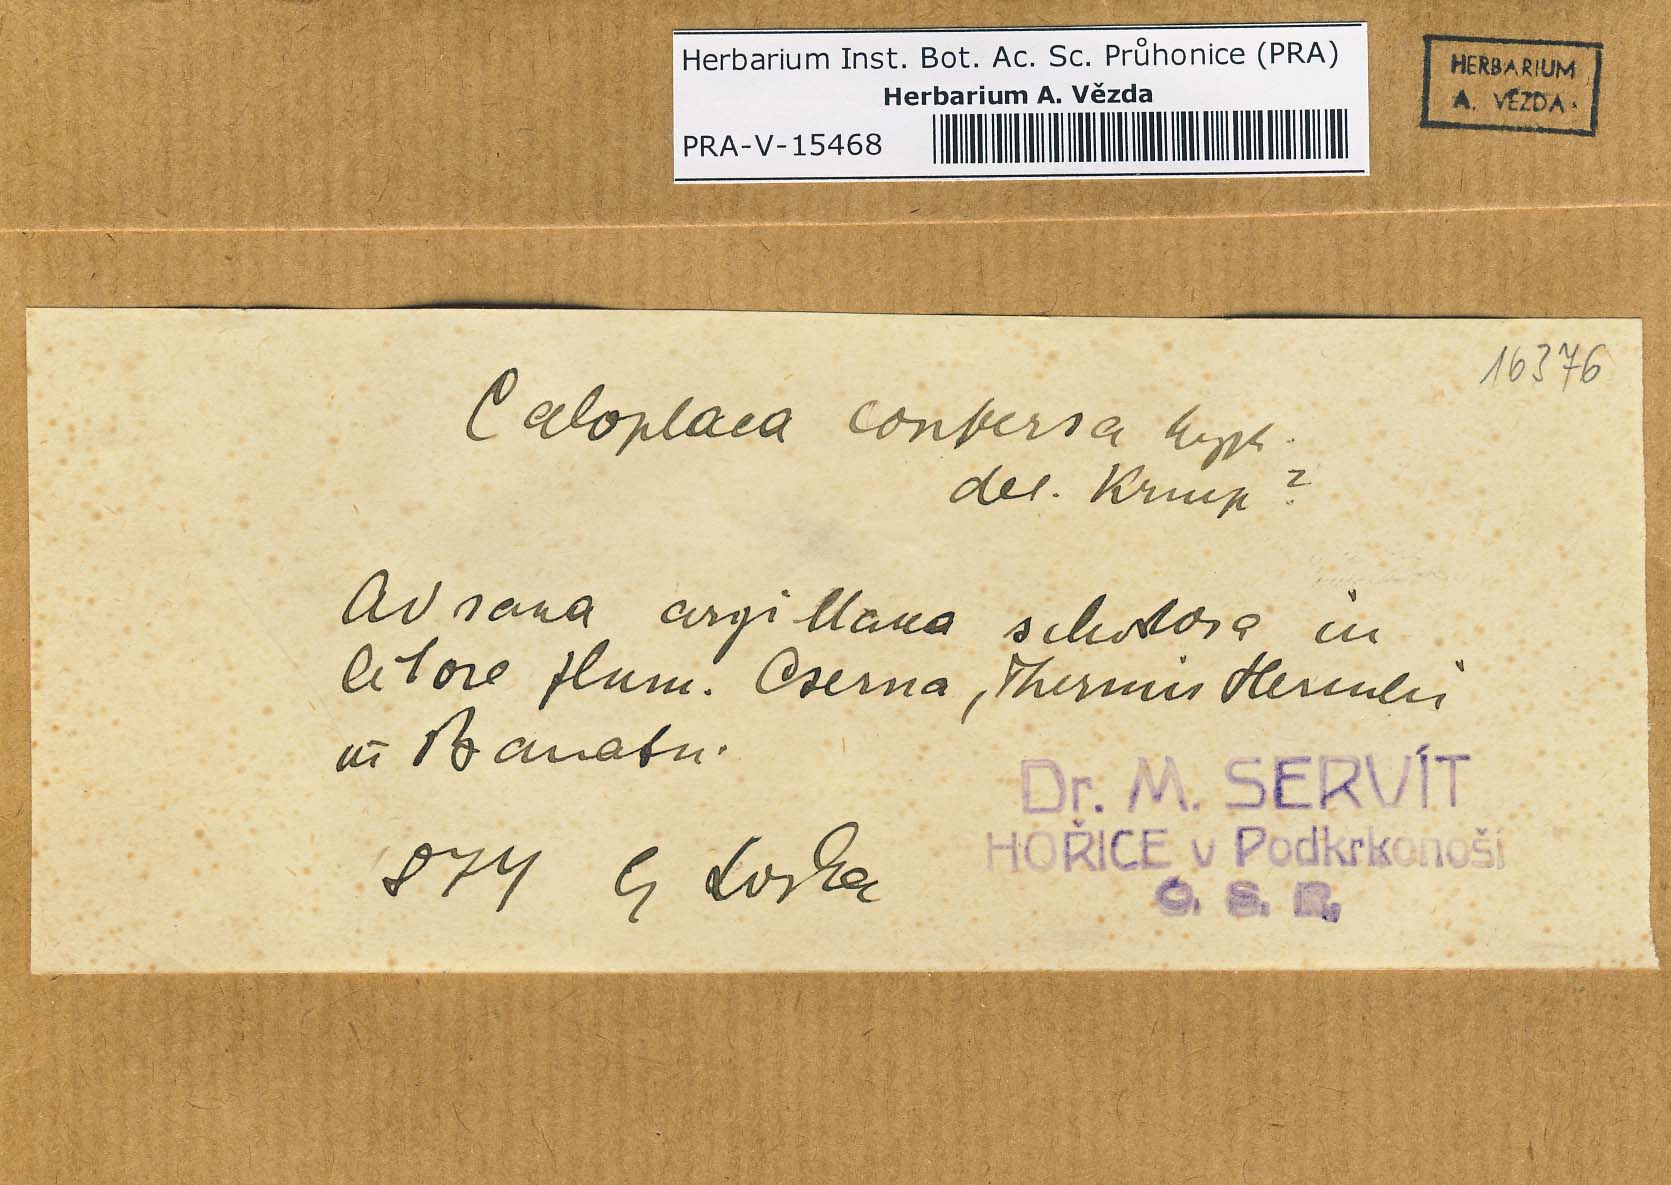 Herbarium Inst. Bot. Ac. Sc. Průhonice (PRA)
Herbarium A. Vězda
PRA-V-15468
HERBARIUM
A. VĚZDA
16376
Caloplaca conversa
det. Kremp ?
Ad saxa argillacea schistosa in
litore flum. Cserna, Thermis Herculis
in Banatu.
874 Lojka
Dr. M. SERVÍT
HOŘICE v Podkrkonoší
Č. S. R.